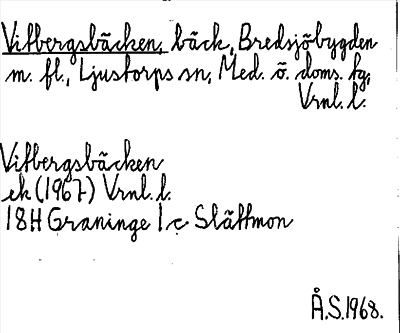 Vitbergsbäcken, bäck, Bredsjöbygden
m. fl., Ljustorps sn, Med. ö. doms. fg,
Vrnl. l.
Vitbergsbäcken
ek (1967) Vrnl. l.
18H Graninge 1 c Slättmon
Å.S. 1968.